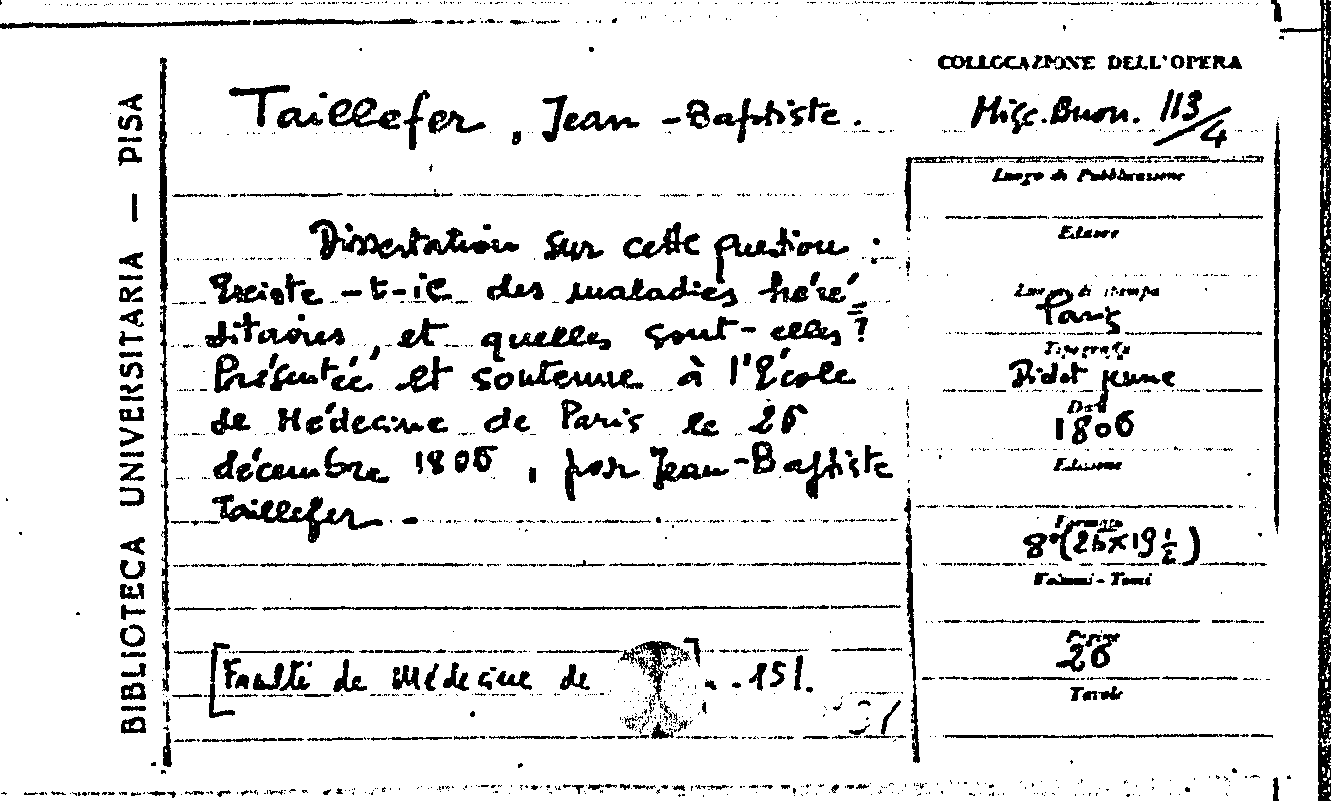 BIBLIOTECA UNIVERSITARIA — PISA
Taillefer, Jean-Baptiste.
Dissertation sur cette question:
Existe-t-il des maladies héré=
ditaires, et quelles sont-elles?
Présentée et soutenue à l'École
de Médecine de Paris le 26
décembre 1806, par Jean-Baptiste
Taillefer.-
[Faculté de Médecine de ] . . 151.
COLLOCAZIONE DELL'OPERA
Misc. Buon. 113/4
Luogo di Pubblicazione
Editore
Luogo di stampa
Paris
Tipografia
Didot jeune
Data
1806
Edizione
Formato
8°(26×19 1/2)
Volumi - Tomi
Pagine
26
Tavole